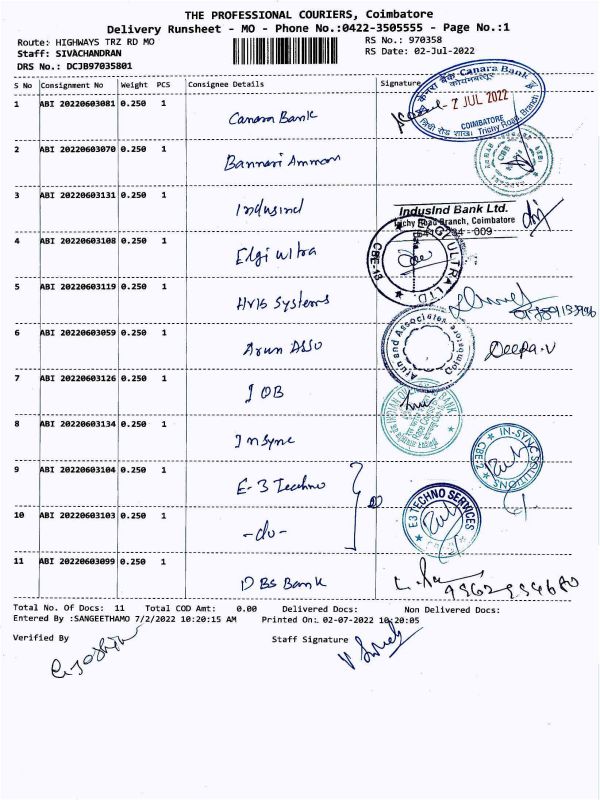 THE PROFESSIONAL COURIERS, Coimbatore
Delivery Runsheet - MO - Phone No.:0422-3505555 - Page No.:1
Route: HIGHWAYS TRZ RD MO RS No.: 970358
Staff: SIVACHANDRAN RS Date: 02-Jul-2022
DRS No.: DCJB97035801
S No Consignment No Weight PCS Consignee Details Signature
1 ABI 20220603081 0.250 1 Canara Bank
Canara Bank
2 JUL 2022
COIMBATORE
Trichy Road Branch
2 ABI 20220603070 0.250 1 Bannari Amman
3 ABI 20220603131 0.250 1 Indusind
IndusInd Bank Ltd.
Branch, Coimbatore
- 009
4 ABI 20220603108 0.250 1 Elgi Ultra
ELGI ULTRA LTD.
CBE-18
5 ABI 20220603119 0.250 1 HVB Systems
6 ABI 20220603059 0.250 1 Arun Asso
Arun and Associates
Coimbatore
Deepa.V
7 ABI 20220603126 0.250 1 IOB
INDIAN BANK
8 ABI 20220603134 0.250 1 Insync
IN-SYNC SOLUTIONS
CBE-2
9 ABI 20220603104 0.250 1 E-3 Techno
E3 TECHNO SERVICES
10 ABI 20220603103 0.250 1 -do-
11 ABI 20220603099 0.250 1 DBS Bank
Total No. Of Docs: 11 Total COD Amt: 0.00 Delivered Docs: Non Delivered Docs:
Entered By :SANGEETHAMO 7/2/2022 10:20:15 AM Printed On: 02-07-2022 10:20:05
Verified By Staff Signature